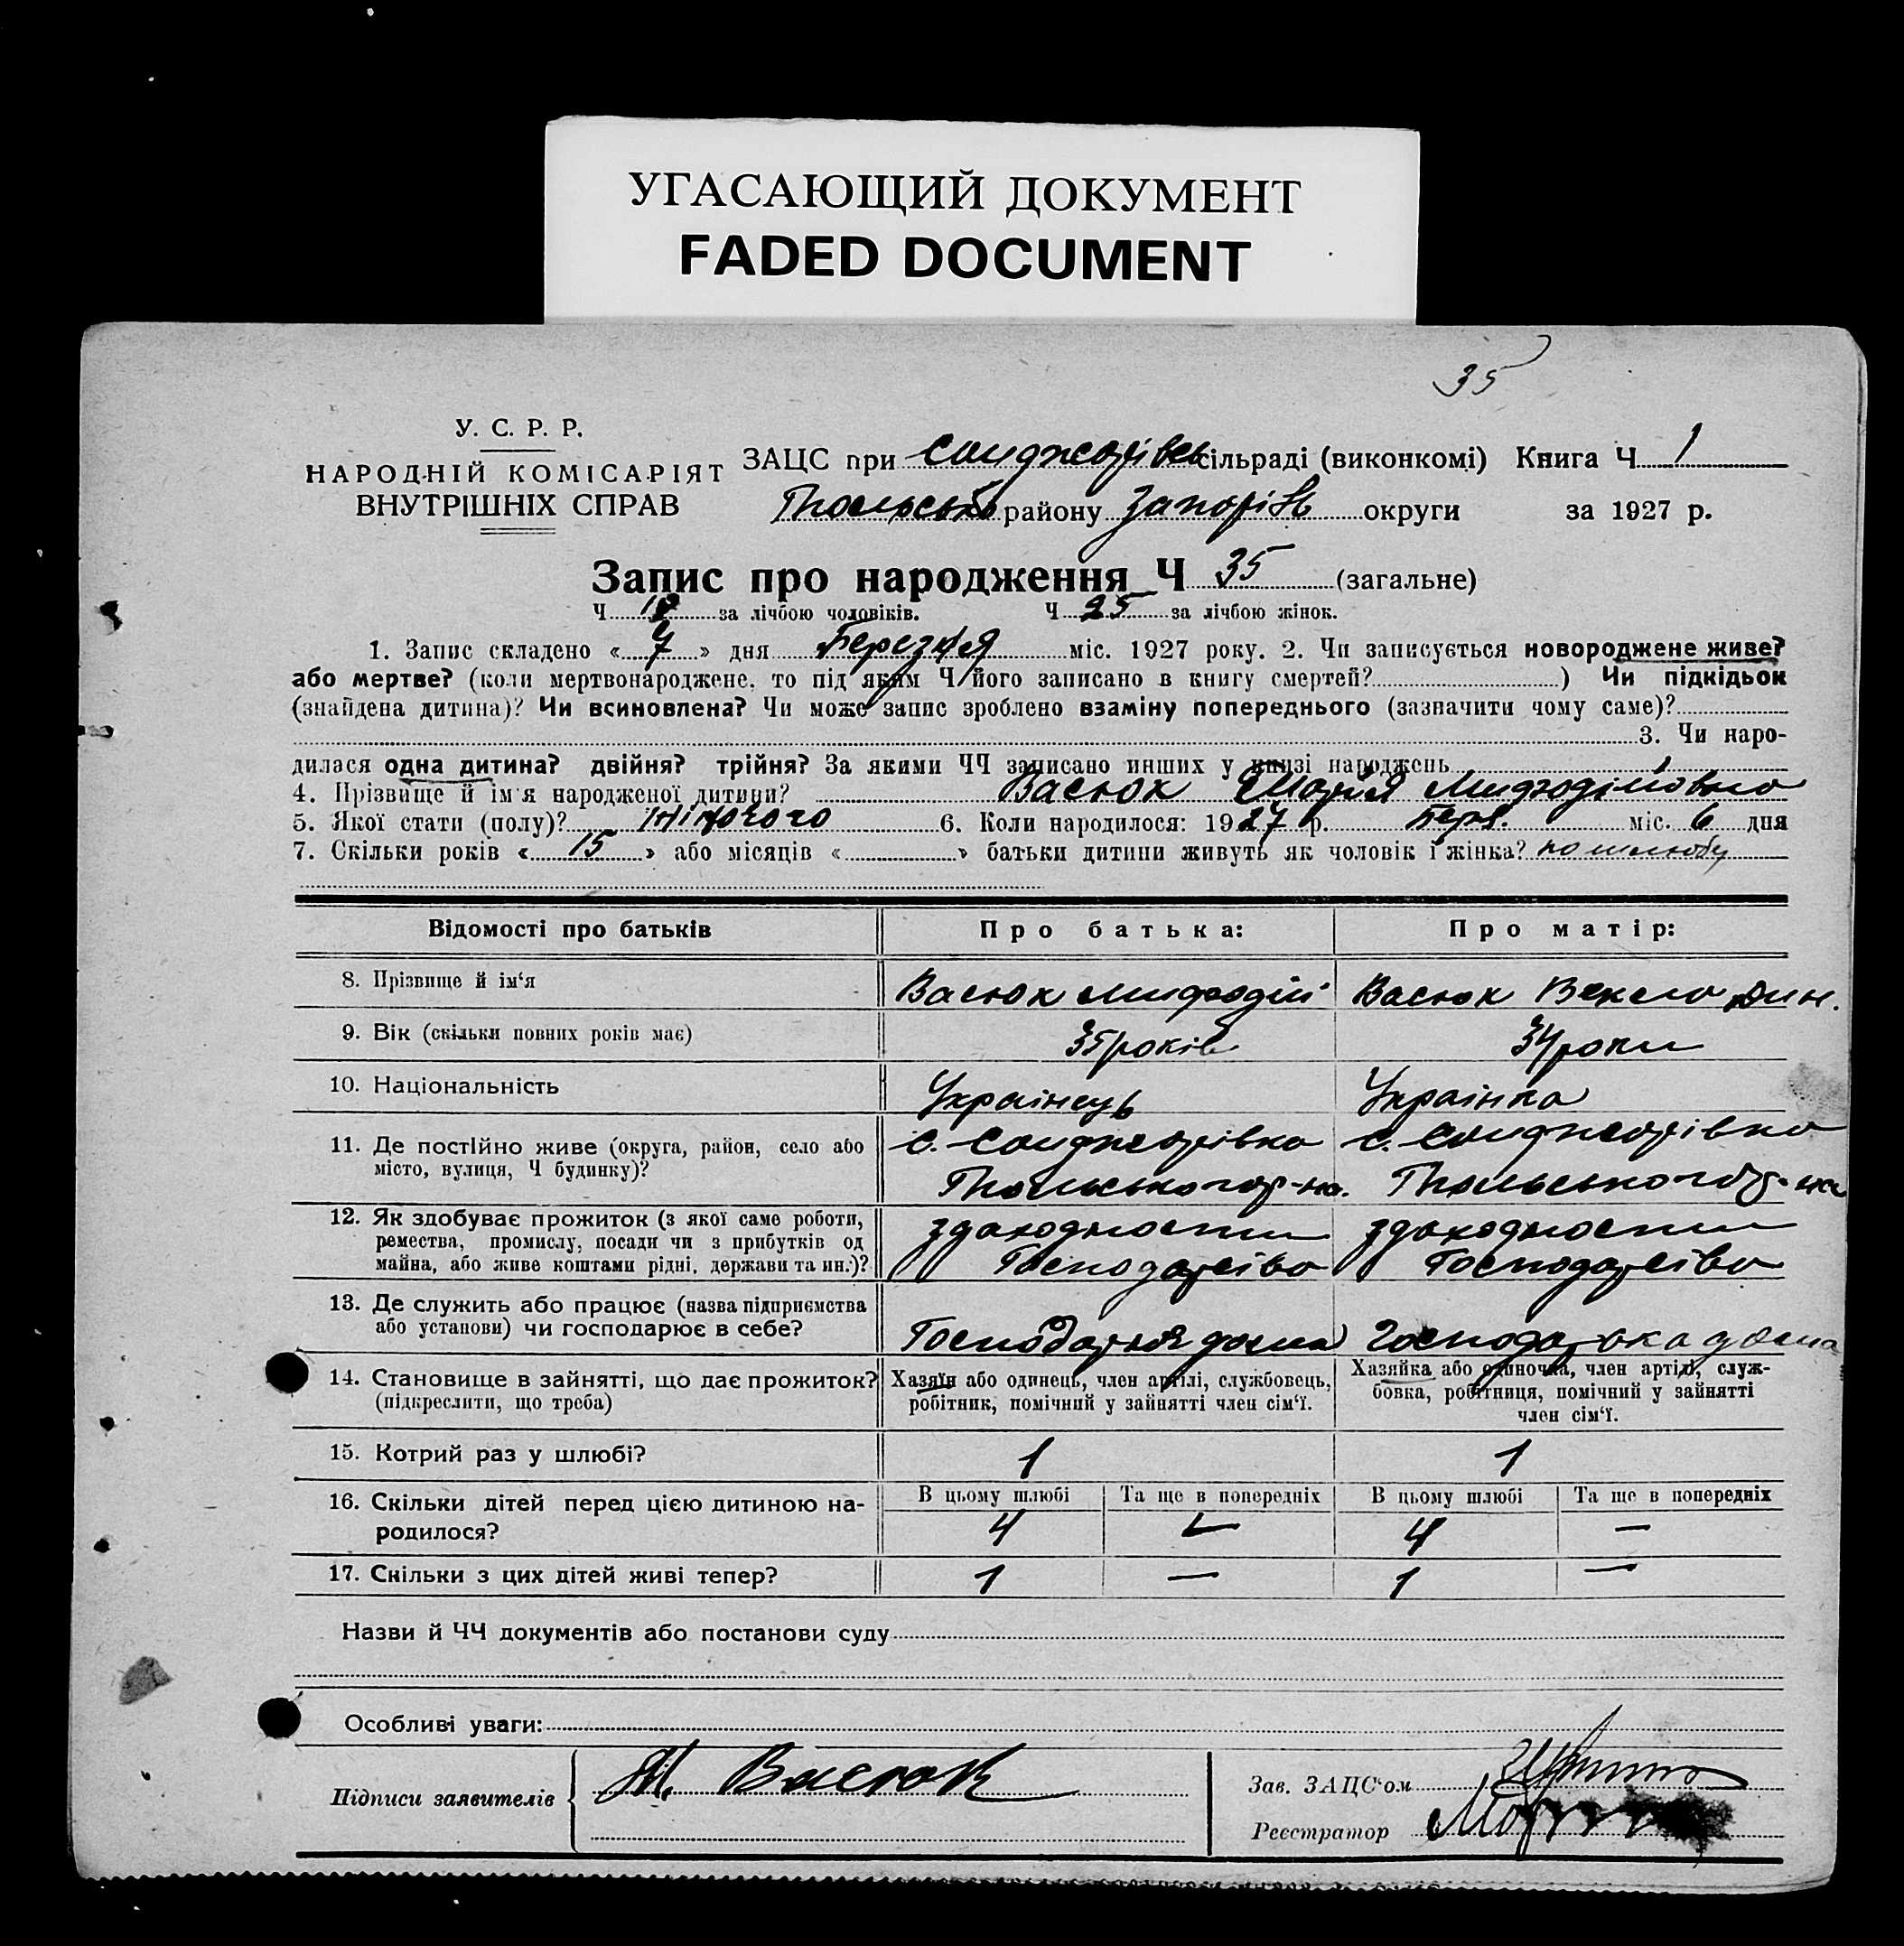 УГАСАЮЩИЙ ДОКУМЕНТ
FADED DOCUMENT
35
У. С. Р. Р.
НАРОДНІЙ КОМІСАРІЯТ
ВНУТРІШНІХ СПРАВ
ЗАЦС при сільраді (виконкомі) Книга Ч 1
району Запоріз округи за 1927 р.
Запис про народження Ч 35 (загальне)
Ч за лічбою чоловіків. Ч 25 за лічбою жінок.
1. Запис складено « 7 » дня Березня міс. 1927 року. 2. Чи записується новороджене живе?
або мертве? (коли мертвонароджене, то під яким Ч його записано в книгу смертей? ) Чи підкідьок
(знайдена дитина)? Чи всиновлена? Чи може запис зроблено взаміну попереднього (зазначити чому саме)?
3. Чи наро-
дилася одна дитина? двійня? трійня? За якими ЧЧ записано инших у книзі народжень
4. Прізвище й ім'я народженої дитини? Васюк Марія Мифодіївна
5. Якої стати (полу)? жіночого 6. Коли народилося: 1927 р. Берз. міс. 6 дня
7. Скільки років « 15 » або місяців « » батьки дитини живуть як чоловік і жінка? по шлюбу
Відомості про батьків Про батька: Про матір:
8. Прізвище й ім'я Васюк Мифодій Васюк
9. Вік (скільки повних років має) 35 років 34 роки
10. Національність Українець Українка
11. Де постійно живе (округа, район, село або
місто, вулиця, Ч будинку)?
12. Як здобуває прожиток (з якої саме роботи, здоходности здоходности
ремества, промислу, посади чи з прибутків од
майна, або живе коштами рідні, держави та ин.)? Господарсіва Господарсіва
13. Де служить або працює (назва підприємства
або установи) чи господарює в себе? Господарює дома Господарка дома
14. Становище в зайнятті, що дає прожиток?
(підкреслити, що треба)
Хазяїн або одинець, член артілі, службовець,
робітник, помічний у зайнятті член сім'ї.
Хазяйка або одиночка, член артілі, служ-
бовка, робітниця, помічний у зайнятті
член сім'ї.
15. Котрий раз у шлюбі? 1 1
16. Скільки дітей перед цією дитиною на-
родилося?
В цьому шлюбі Та ще в попередніх В цьому шлюбі Та ще в попередніх
4 — 4 —
17. Скільки з цих дітей живі тепер? 1 — 1 —
Назви й ЧЧ документів або постанови суду
Особливі уваги:
Підписи заявителів М. Васюк
Зав. ЗАЦС'ом
Реєстратор